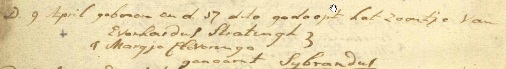 D. 9 April geboren en d 17 dito gedoopt het Zoontje van
Everhardus Stratingh
& Marijje
genaamt Sybrandus